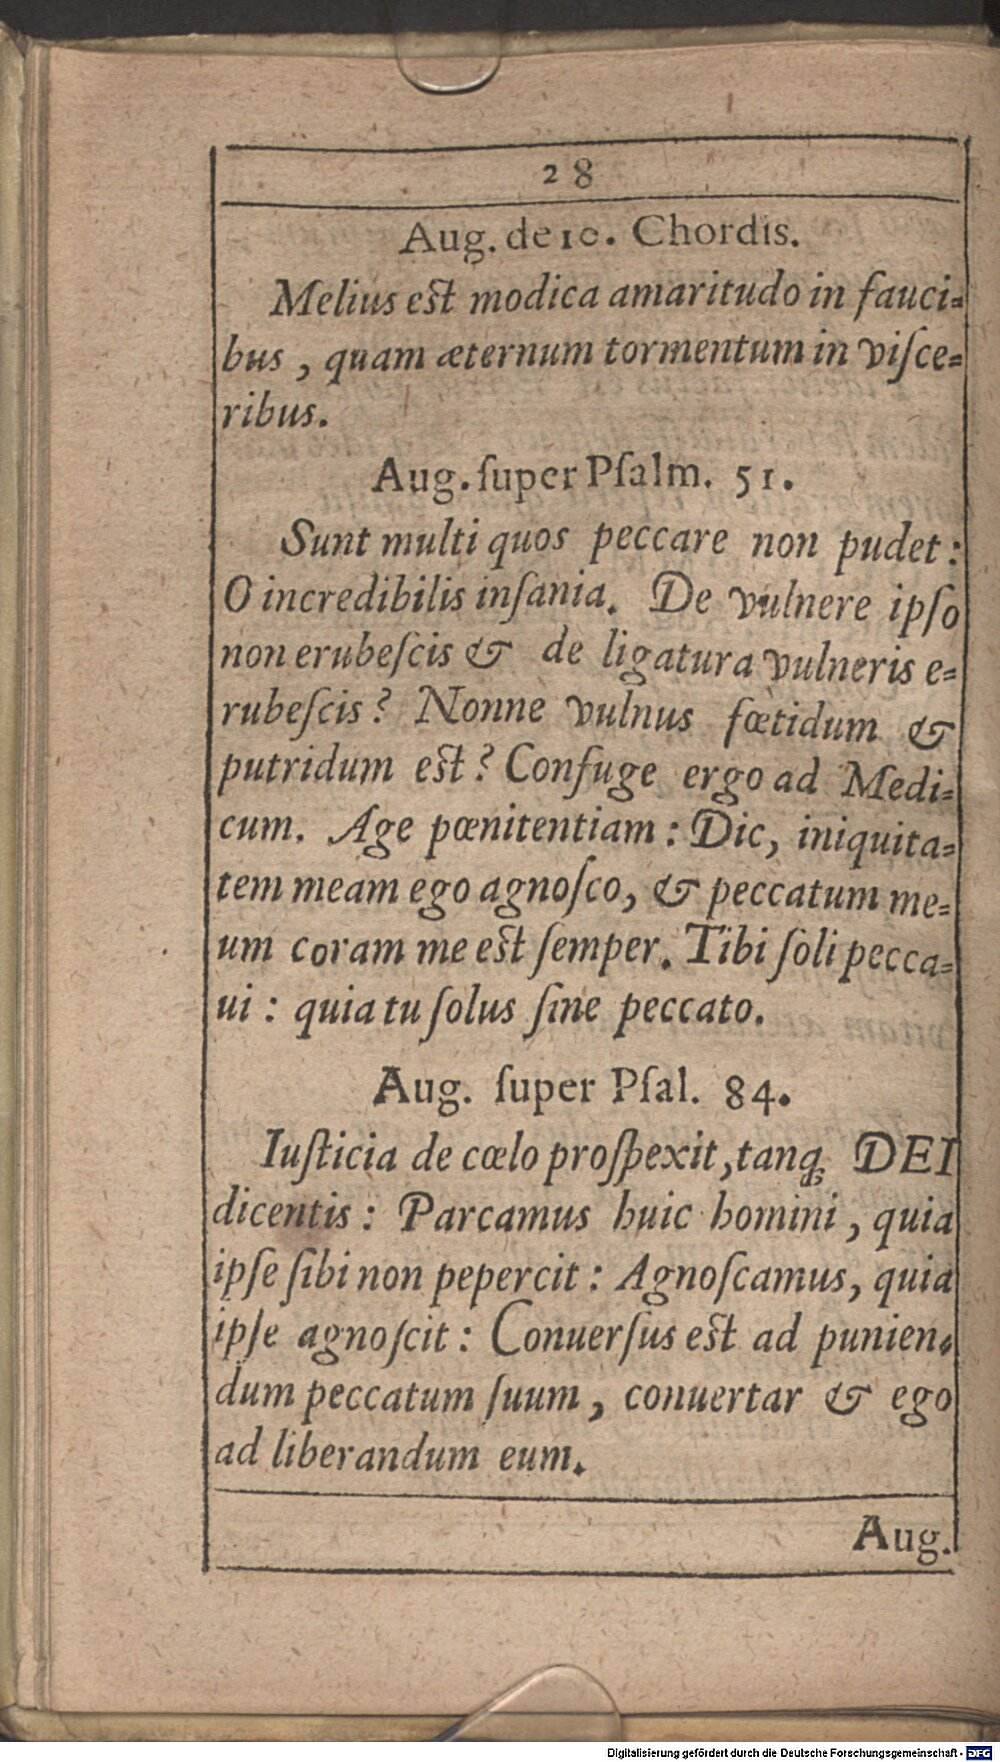 28
Aug. de 10. Chordis.
Melius est modica amaritudo in fauci=
bus, quam æternum tormentum in viſce=
ribus.
Aug. ſuper Pſalm. 51.
Sunt multi quos peccare non pudet:
O incredibilis inſania. De vulnere ipſo
non erubeſcis & de ligatura vulneris e=
rubeſcis? Nonne vulnus fœtidum &
putridum est? Confuge ergo ad Medi=
cum. Age pœnitentiam: Dic, iniquita=
tem meam ego agnoſco, & peccatum me=
um coram me est ſemper. Tibi ſoli pecca=
ui: quia tu ſolus ſine peccato.
Aug. ſuper Pſal. 84.
Iuſticia de cœlo proſpexit, tanꝙ DEI
dicentis: Parcamus huic homini, quia
ipſe ſibi non pepercit: Agnoſcamus, quia
ipſe agnoſcit: Conuerſus est ad punien=
dum peccatum ſuum, conuertar & ego
ad liberandum eum.
Aug.
Digitalisierung gefördert durch die Deutsche Forschungsgemeinschaft - DFG